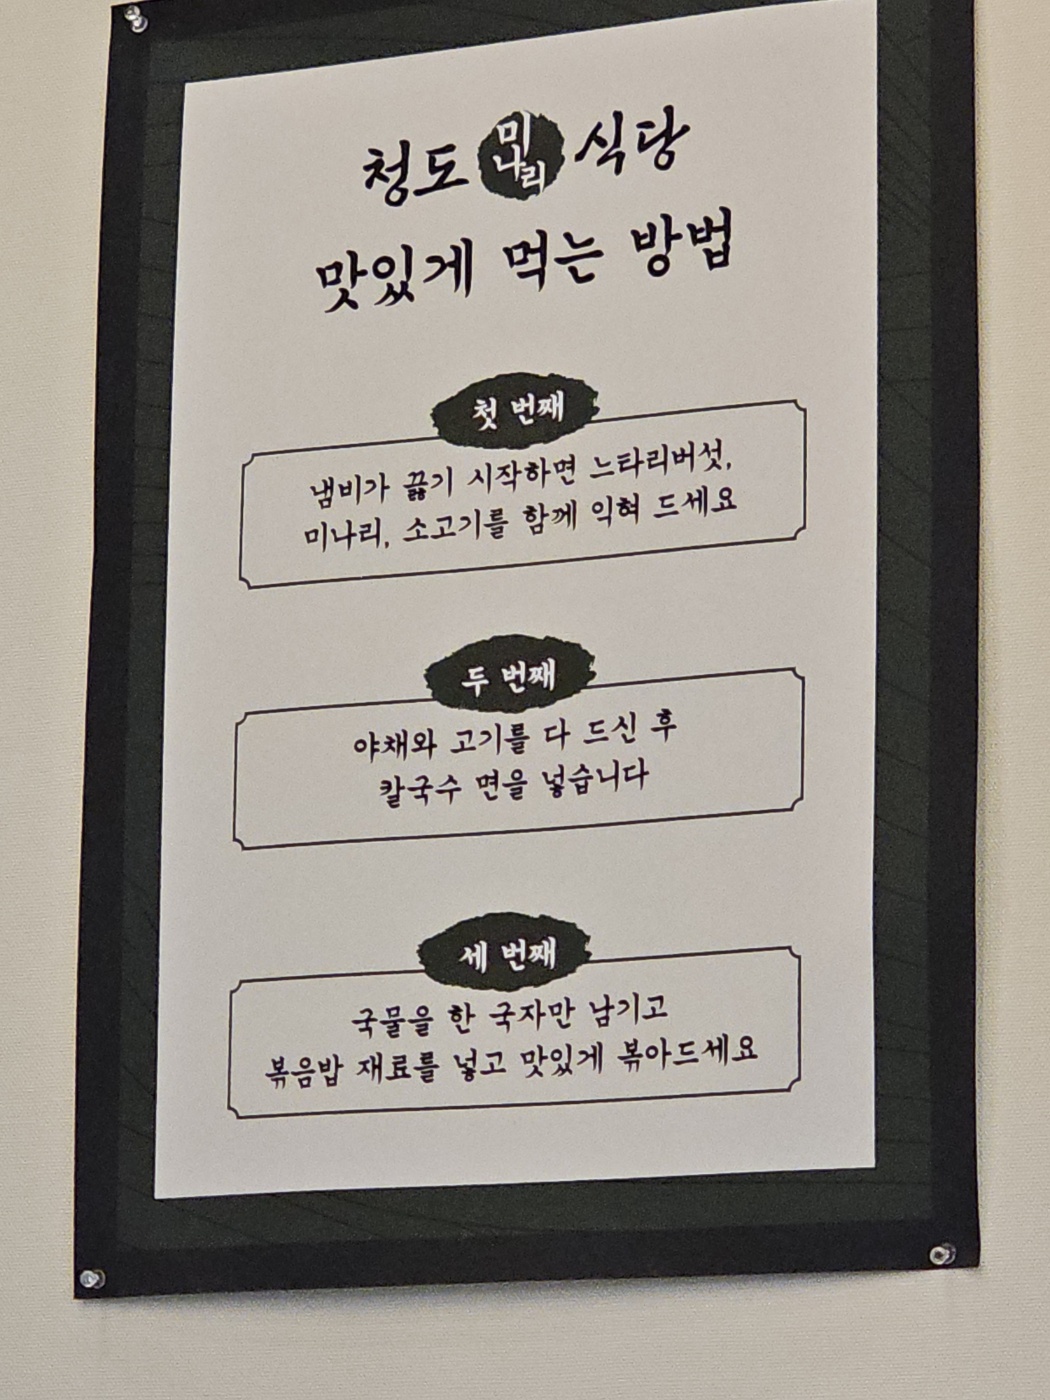 청도 미나리 식당
맛있게 먹는 방법
첫 번째
냄비가 끓기 시작하면 느타리버섯,
미나리, 소고기를 함께 익혀 드세요
두 번째
야채와 고기를 다 드신 후
칼국수 면을 넣습니다
세 번째
국물을 한 국자만 남기고
볶음밥 재료를 넣고 맛있게 볶아드세요